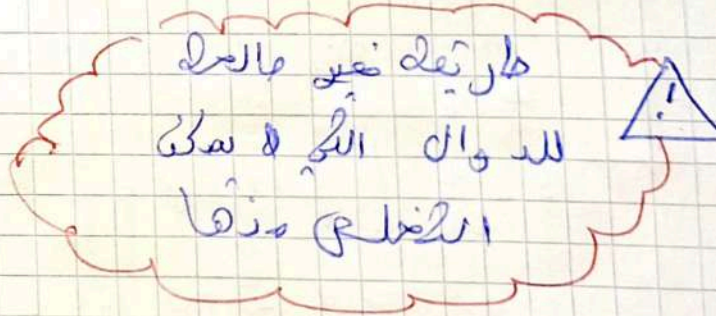 طريقة غير صالحة
للدوال التي لا يمكن
التخلص منها
!